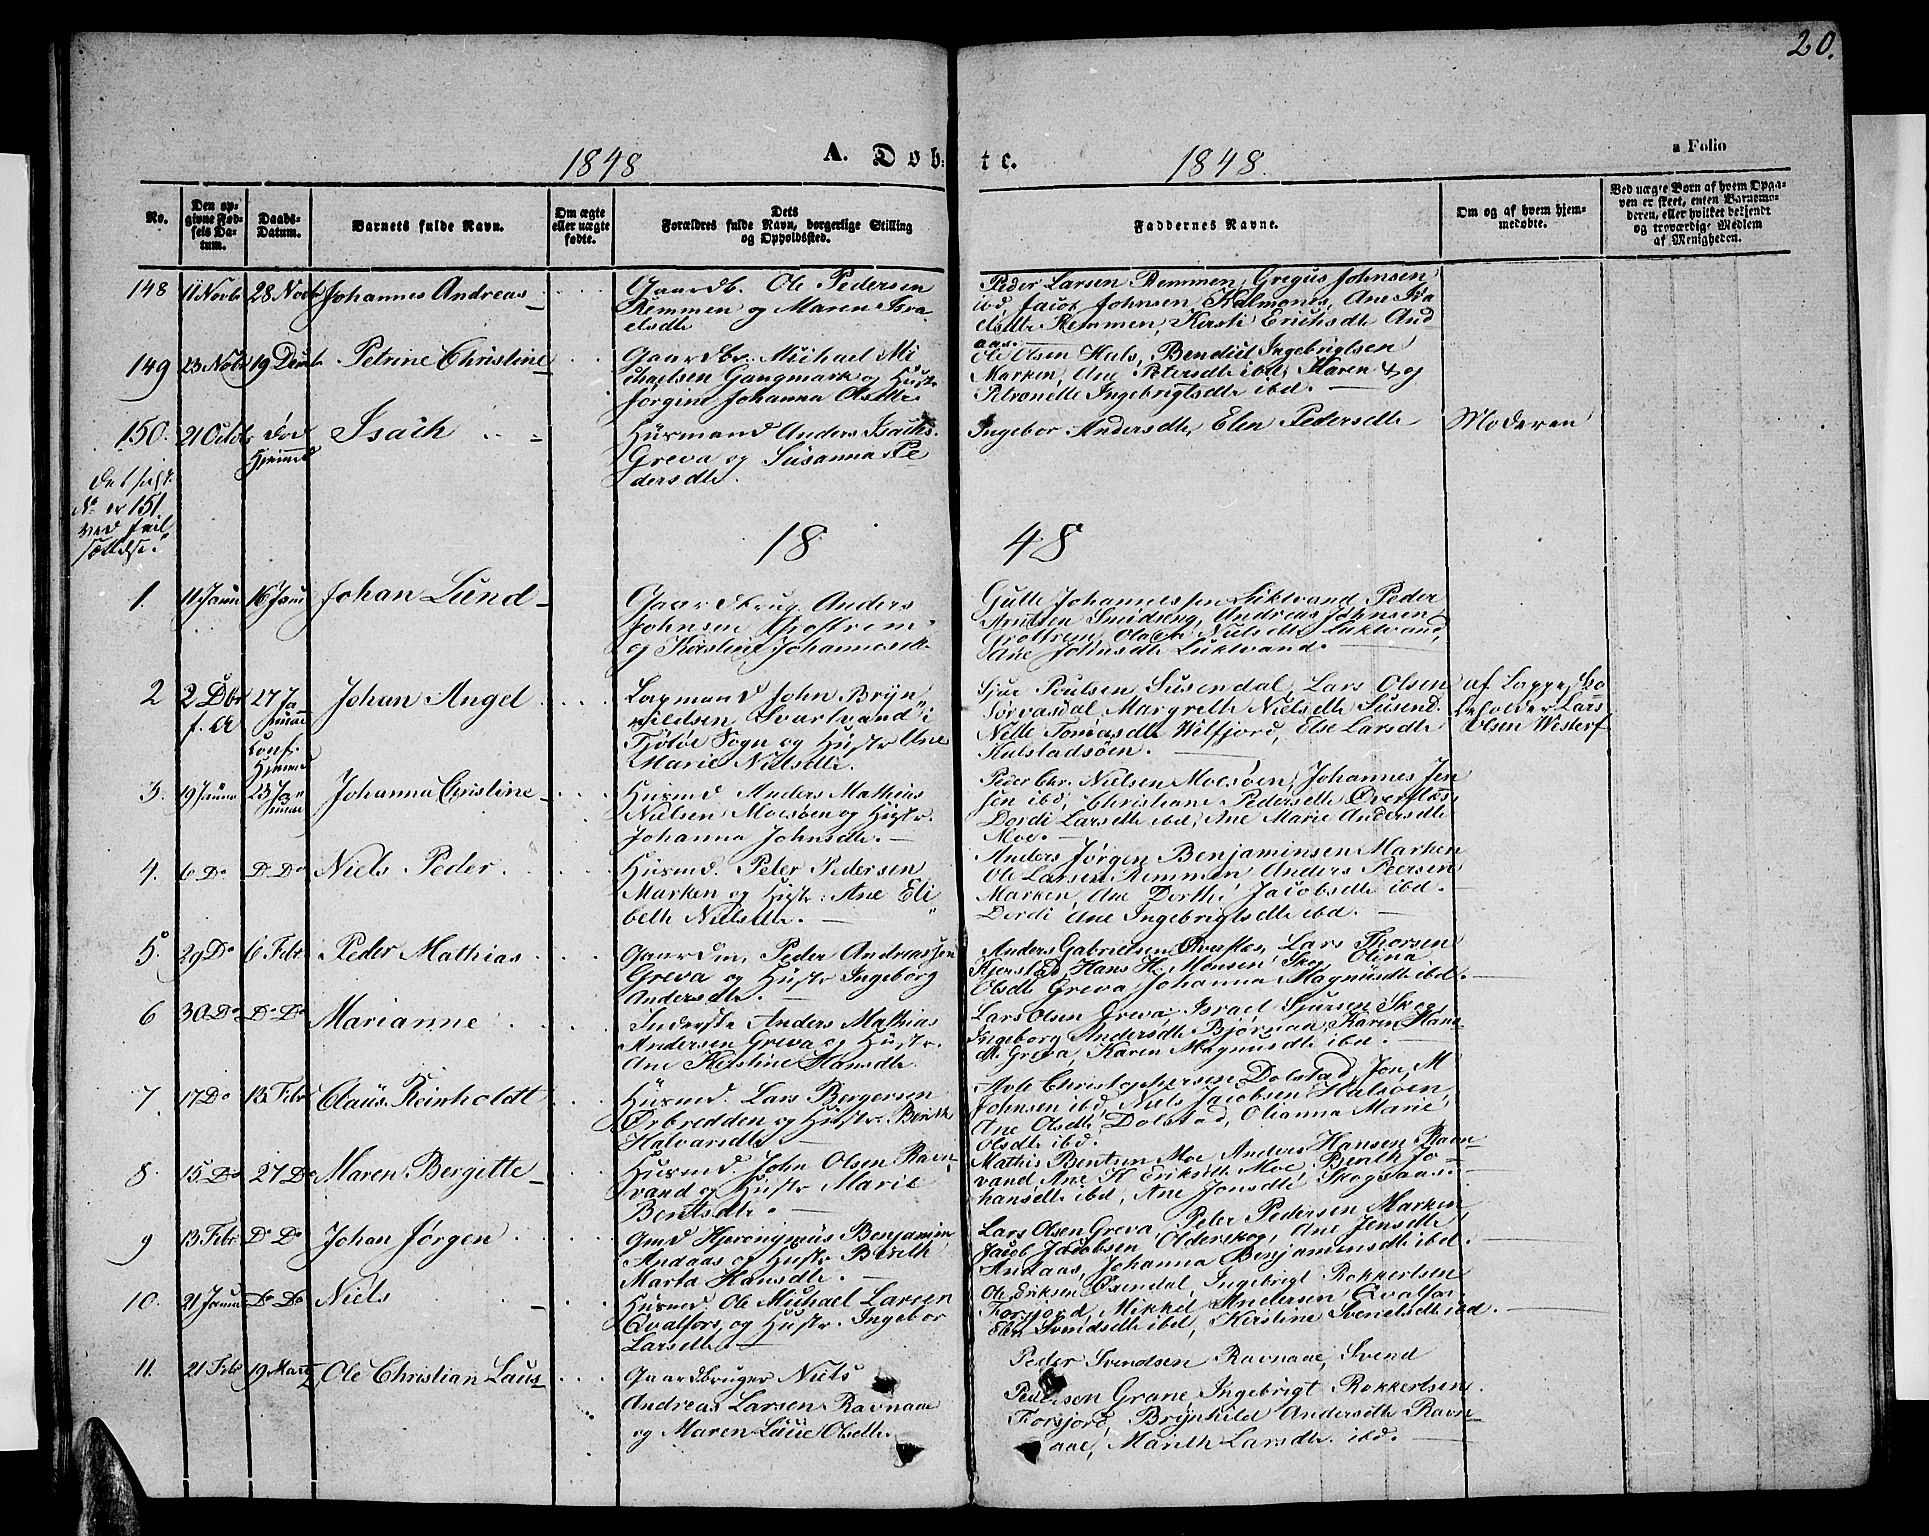 20.
1848
A. Døb-
te.
1848.
a Folio
No.
Den op-
givne Fød-
sels Da-
tum.
Daabs-
Datum.
Barnets fulde Navn.
Om ægte
eller uægte
fødte.
Dets
Forældres fulde Navn, borgerlige Stilling
og Opholdssted.
Faddernes Navne.
Om og af hvem hjem-
medøbte.
Ved uægte Børn af hvem Opga-
ven er skeet, enten Barnemo-
deren, eller hvilket bekjendt
og troværdigt Medlem
af Menigheden.
148 11 Novbr 28 Novbr Johannes Andreas
Gaardb. Ole Pedersen
Remmen og Maren Isra-
elsdtr
Peder Larsen Remmen, Gregus Johnsen
ibd, Jacob Johnsen Kalmones, Ane Isra
elsdtr Remmen, Kirsti Erichsdtr And
aas.
149 23 Novbr 19 Decbr Petrine Christine
Gaardbr. Michael Mi
chaelsen Gangmark og Hustr
Jørgine Johanna Olsdtr.
Ole Olsen Hals, Bendict Ingebrigtsen
Marken, Ane Petersdtr ibd, Maren & og
Petronelle Ingebrigtsdtr ibd.
150. 21 Octbr død
Hjemmed Isach
Huusmand Anders Isachs.
Greva og Susanna Pe
dersdtr.
Ingebor Andersdtr, Elen Pedersdtr
Moderen
det sidst.
No er 151
ved feil
sættelse.
18 48
1. 11 Januar 16 Janu Johan Lund
Gaardbrug. Anders
Johnsen
og Kirstine Johannesdtr
Gulle Johannessen Luktvand Peder
Arntsen Smidseng, Andreas Johnsen
Nielsdtr Luktvand
Ane Johnsdtr Luktvand.
2 2 Dbr
f. A 27 Ja
nuar
Conf.
Hjemmed Johan Angel
Lapmand John Bryn
nildsen Svartvand i
Tjøtøe Sogn og Hustr Ane
Marie Nielsdtr.
Sjur Poulsen Susendal, Lars Olsen
Sørvasdal, Margrethe Nielsdtr Susend.
Nette Tomasdtr Welfjord, Else Larsdtr
Kulstadsøen.
af Lappe
beholder Lars
Olsen Westerf
3. 19 Januar 23 Ja
nuar Johanna Christine
Huusmd Anders Mathias
Nielsen Moesøen og Hustr.
Johanna Johnsdtr.
Peder Chr. Nielsen Moesøen, Johannes Jen
sen ibd, Christiane Pedersdtr Øverflæs
Dordi Larsdtr ibd, Ane Marie Andersdtr
Moe.
4. 6 Do Do Do Niels Peder.
Huusmd. Peter Pedersen
Marken og Hustr: Ane Eli
beth Nielsdtr.
Anders Jørgen Benjaminsen Marken
Ole Larsen Remmen Anders Peersen
Marken, Ane Dorthe Jacobsdtr ibd.
Dordi Ane Ingebrigtsdtr ibd.
5. 29 Do 6 Febr Peder Mathias
Gaardm. Peder Andreassen
Greva og Hustr Ingeborg
Andersdtr.
Anders Gabrielsen Øverflæs, Lars Thorsen
Fjerstad, Hans H. Monsen Skog, Olina
Olsdtr Greva, Johanna Magnusdtr ibd.
6 30 Do Do Do Marianne
Inderste Anders Mathias
Andersen Greva og Hustr.
Ane Kirstine Hansdtr
Lars Olsen Greva, Israel Sjursen Skog
Ingeborg Andersdtr Bjørnaa, Karen Hans
dtr Greva, Karen Magnusdtr ibd.
7. 17 Do 13 Febr Claus Reinholdt
Huusmd. Lars Bergersen
Ørbredden og Hustr. Berith
Halvarsdtr.
Christophersen Dolstad, Jon M
Johnsen ibd, Niels Jacobsen Halsøen,
Ane Olsdtr Dolstad, Olianna Marie
Olsdtr ibd.
8. 15 Do 27 Do Maren Bergitte
Huusmd. John Olsen Ravn-
vand og Hustr Marie
Bentsdtr.
Mathis Bentsen Moe Anders Hansen Ravn
vand, Ane K Eriksdtr Moe, Berith Jo
hansdtr ibd, Ane Jonsdtr Skogsaas.
9 13 Febr Do Do Johan Jørgen
Gmd Hjeronymus Benjamin
Andaas og Hustr Berith
Marta Hansdtr.
Lars Olsen Greva, Peter Pedersen Marken,
Jacob Jacobsen Olderskog, Ane Jensdtr
Andaas, Johanna Benjaminsdtr ibd.
10. 21 Januar Do Do Niels
Huusmd, Ole Michael Larsen
Qvalfors, og Hustr. Ingebor
Larsdtr
Ole Eriksen Øxendal, Ingebrigt Rokkertsen
Forsjord, Mikkel Andersen Qvalfors
Elen Svendsdtr ibd, Kirstine Svendsdtr ibd.
11. 21 Febr 19 Marts Ole Christian Laus
Gaardbruger Niels
Andreas Larsen Ravnaae
og Maren Lucie Olsdtr.
Peder Svendsen Ravnaae, Svend
Pedersen Grane, Ingebrigt Rokkertsen
Forsjord, Brynhild Andersdtr Ravn-
aae, Marith Larsdtr ibd.